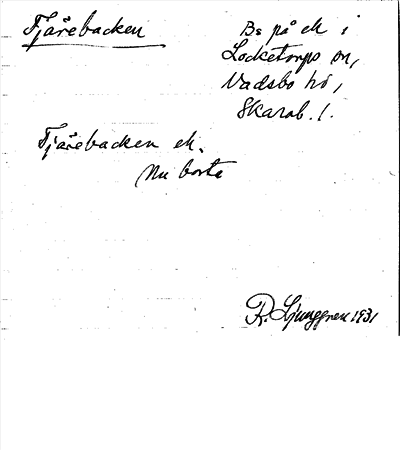 Fjärebacken
Bs på ek i
Locketorps sn,
Vadsbo hd,
Skarab. l.
Fjärebacken ek.
Nu borta
R. Ljunggren 1931